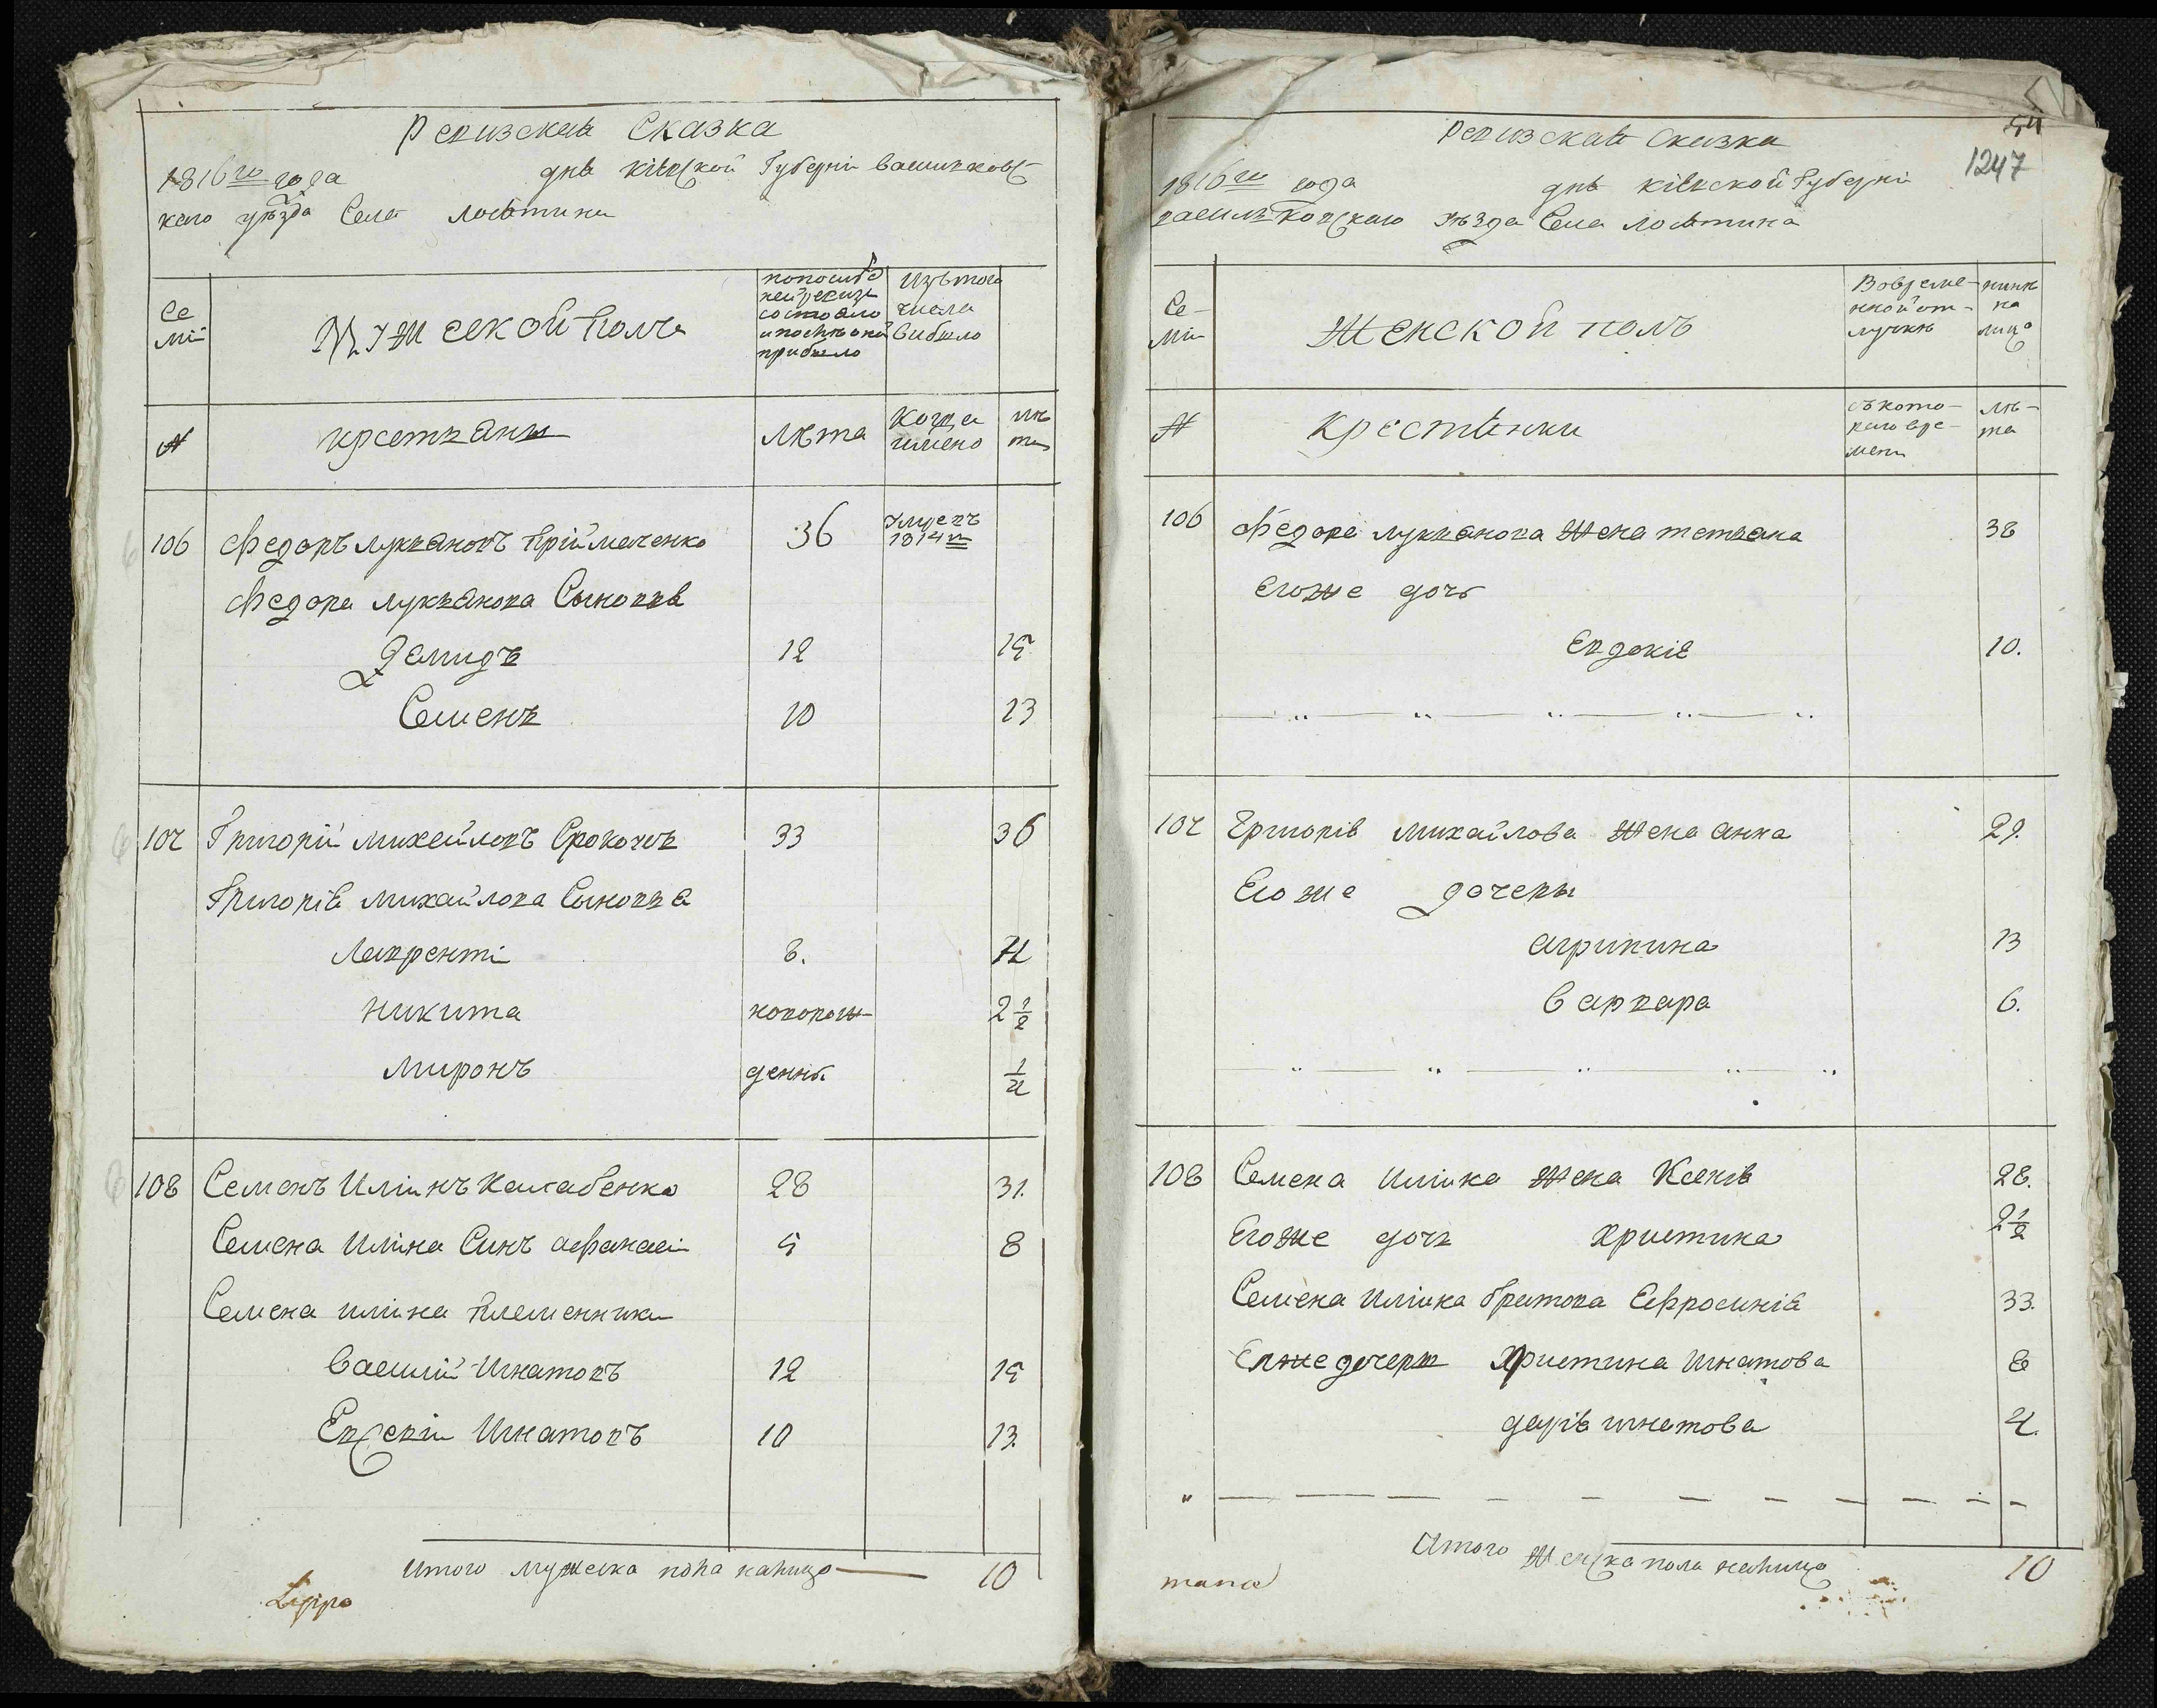 Ревизская Сказка
1816го года дня Кіевской Губерніи Васильковс
каго уѣзда Села Лосятина
Се
міи
Мужеской Полъ
попослѣд
ней ревизіи
состояло
и послѣ оной
прибыло
Изътого
числа
выбыло
№
крестьяны
Лѣта
Когда
имено
лѣ
та
106 Федоръ Лукьяновъ Пріймаченко 36 Умеръ
1814го
Федора Лукьянова Сыновья
Демидъ 12 15
Семенъ 10 13
107 Григорій Михайловъ 33 36
Григорія Михайлова Сыновья
Лаврентій 8. 11
Никита новорож 2 1/2
Миронъ денній 1/2
108 Семенъ Илінъ 28 31.
Семена Иліна Синъ Афанасій 5 8
Семена Иліна Племенники
Василій Игнатовъ 12 15
Евсевій Игнатовъ 10 13.
Итого мужеска пола налицо 10
54
1247
Ревизская Сказка
1816го года дня Кіевской Губерніи
Васильковскаго уѣзда Села Лосятина
Се
міи
Женской полъ
Вовреме
нной от
лучкѣ
нынѣ
на
лицо
№
Крестянки
съкото
раго вре
мени
лѣ
та
106 Федора Лукьянова Жена Татьяна 38
Егоже дочь
Евдокія 10.
107 Григорія Михайлова Жена Анна 29.
Его же дочеры
Агрипина 13
Варвара 6.
108 Семена Иліина Жена Ксенія 28.
Егоже дочь Христина 2 1/2
Семена Иліина братова Ефросинія 33.
Еяже дочеры Христина Игнатова 8
Дарія Игнатова 4.
Итого Женска пола налицо 10